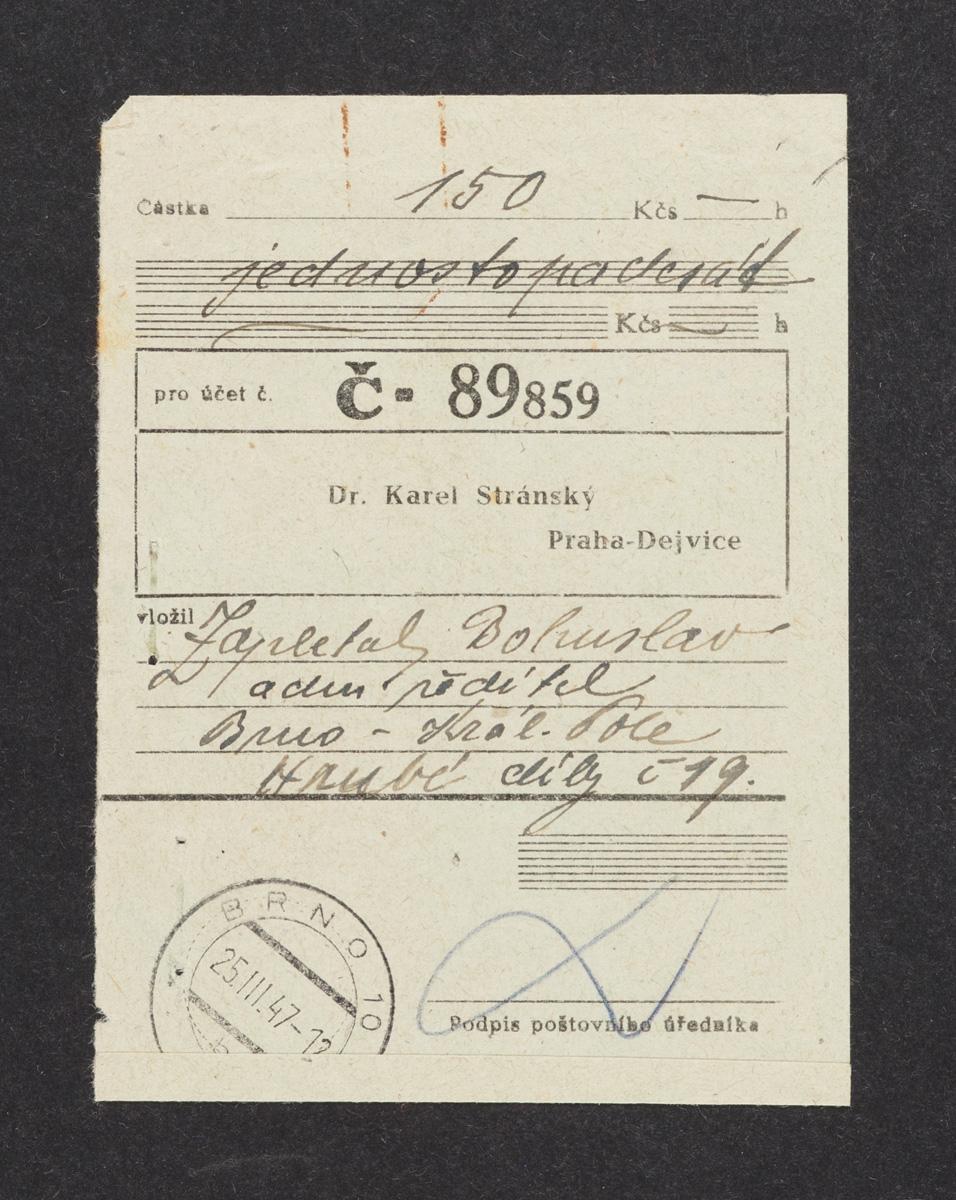 Částka 150 Kčs — h
jednostopadesát
Kčs — h
pro účet č. Č- 89859
Dr. Karel Stránský
Praha-Dejvice
vložil Zapletal Bohuslav
adm. ředitel
Brno - Král. Pole
Hrubé díly č 19.
BRNO 10
25.III.47-12
Podpis poštovního úředníka